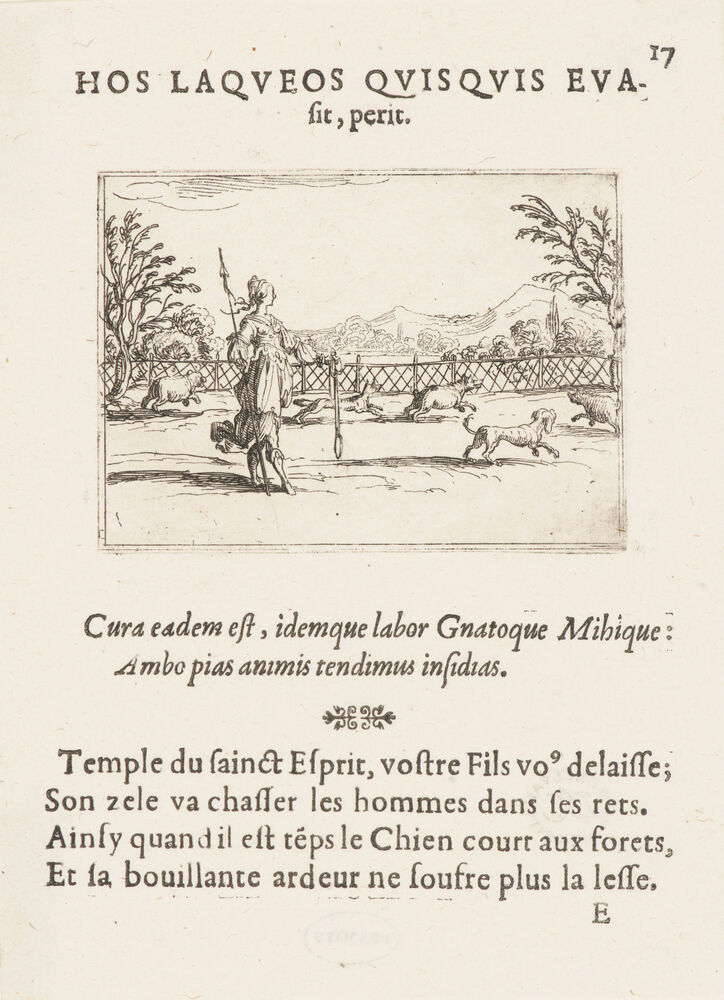 17
HOS LAQVEOS QVISQVIS EVA-
ſit, perit.
Cura eadem eſt, idemque labor Gnatoque Mihique:
Ambo pias animis tendimus inſidias.
Temple du ſainct Eſprit, voſtre Fils vo⁹ delaiſſe;
Son zele va chaſſer les hommes dans ſes rets.
Ainſy quand il eſt tẽps le Chien court aux forets,
Et ſa bouillante ardeur ne ſoufre plus la leſſe.
E